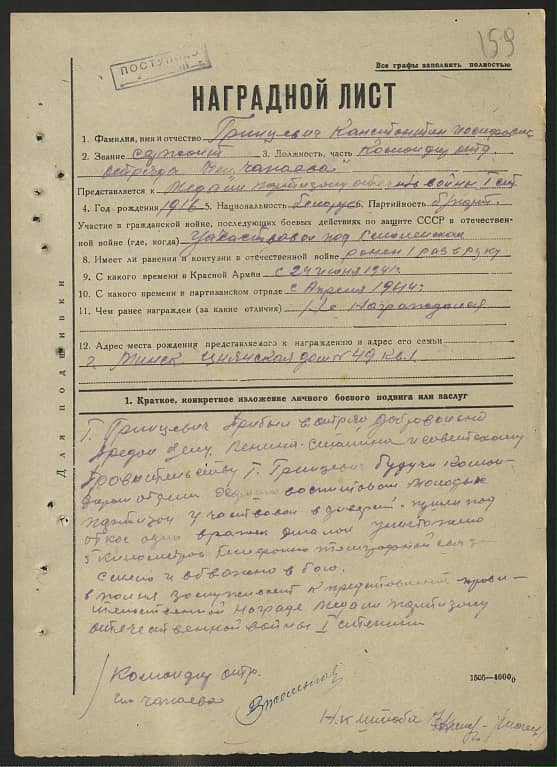 159
ПОСТУПИЛО
Все графы заполнить полностью
НАГРАДНОЙ ЛИСТ
1. Фамилия, имя и отчество Грицевич Канстонтин
2. Звание сержант 3. Должность, часть Командир отд.
отряда им. Чапаева"
Представляется к Медали партизану отеч войны I ст
4. Год рождения 1916 5. Национальность белорус 6. Партийность
Участие в гражданской войне, последующих боевых действиях по защите СССР в отечествен-
ной войне (где, когда) под Смоленском
8. Имеет ли ранения и контузии в отечественной войне ранен 1 раз в руку
9. С какого времени в Красной Армии с 24 июня 1941г.
10. С какого времени в партизанском отряде с Апреля
11. Чем ранее награжден (за какие отличия) Не Награждался
12. Адрес места рождения представляемого к награждению и адрес его семьи
г. Минск дом № 49 кв. 1
Для подшивки
1. Краткое, конкретное изложение личного боевого подвига или заслуг
Т. Грицевич Прибыл в отряд добровольно
Предан делу Ленина-Сталина и советскому
Правительству Т. Грицевич будучи
отделения молодых
партизан участвовал в диверсии пущен под
откос один вражий уничтожено
5 километров телеграфной связи
смело и отважно в бою.
заслуживает к прави-
тельственной награде медали партизану
отечественной войны I степени
Командир отр.
им Чапаева
1505—4000
Н.к штаба